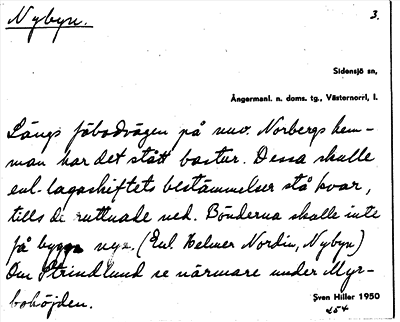 Nybyn.
3.
Sidensjö sn,
Ångermanl. n. doms. tg., Västernorrl, l.
Längs fäbodvägen på nuv. Norbergs hem-
man har det stått bastur. Dessa skulle
enl. lagaskiftets bestämmelser stå kvar,
tills de ruttnade ned. Bönderna skulle inte
få bygga nya. (Enl. Helmer Nordin, Nybyn)
Om Strindlund se närmare under Myr-
bohöjden.
Sven Hiller 1950